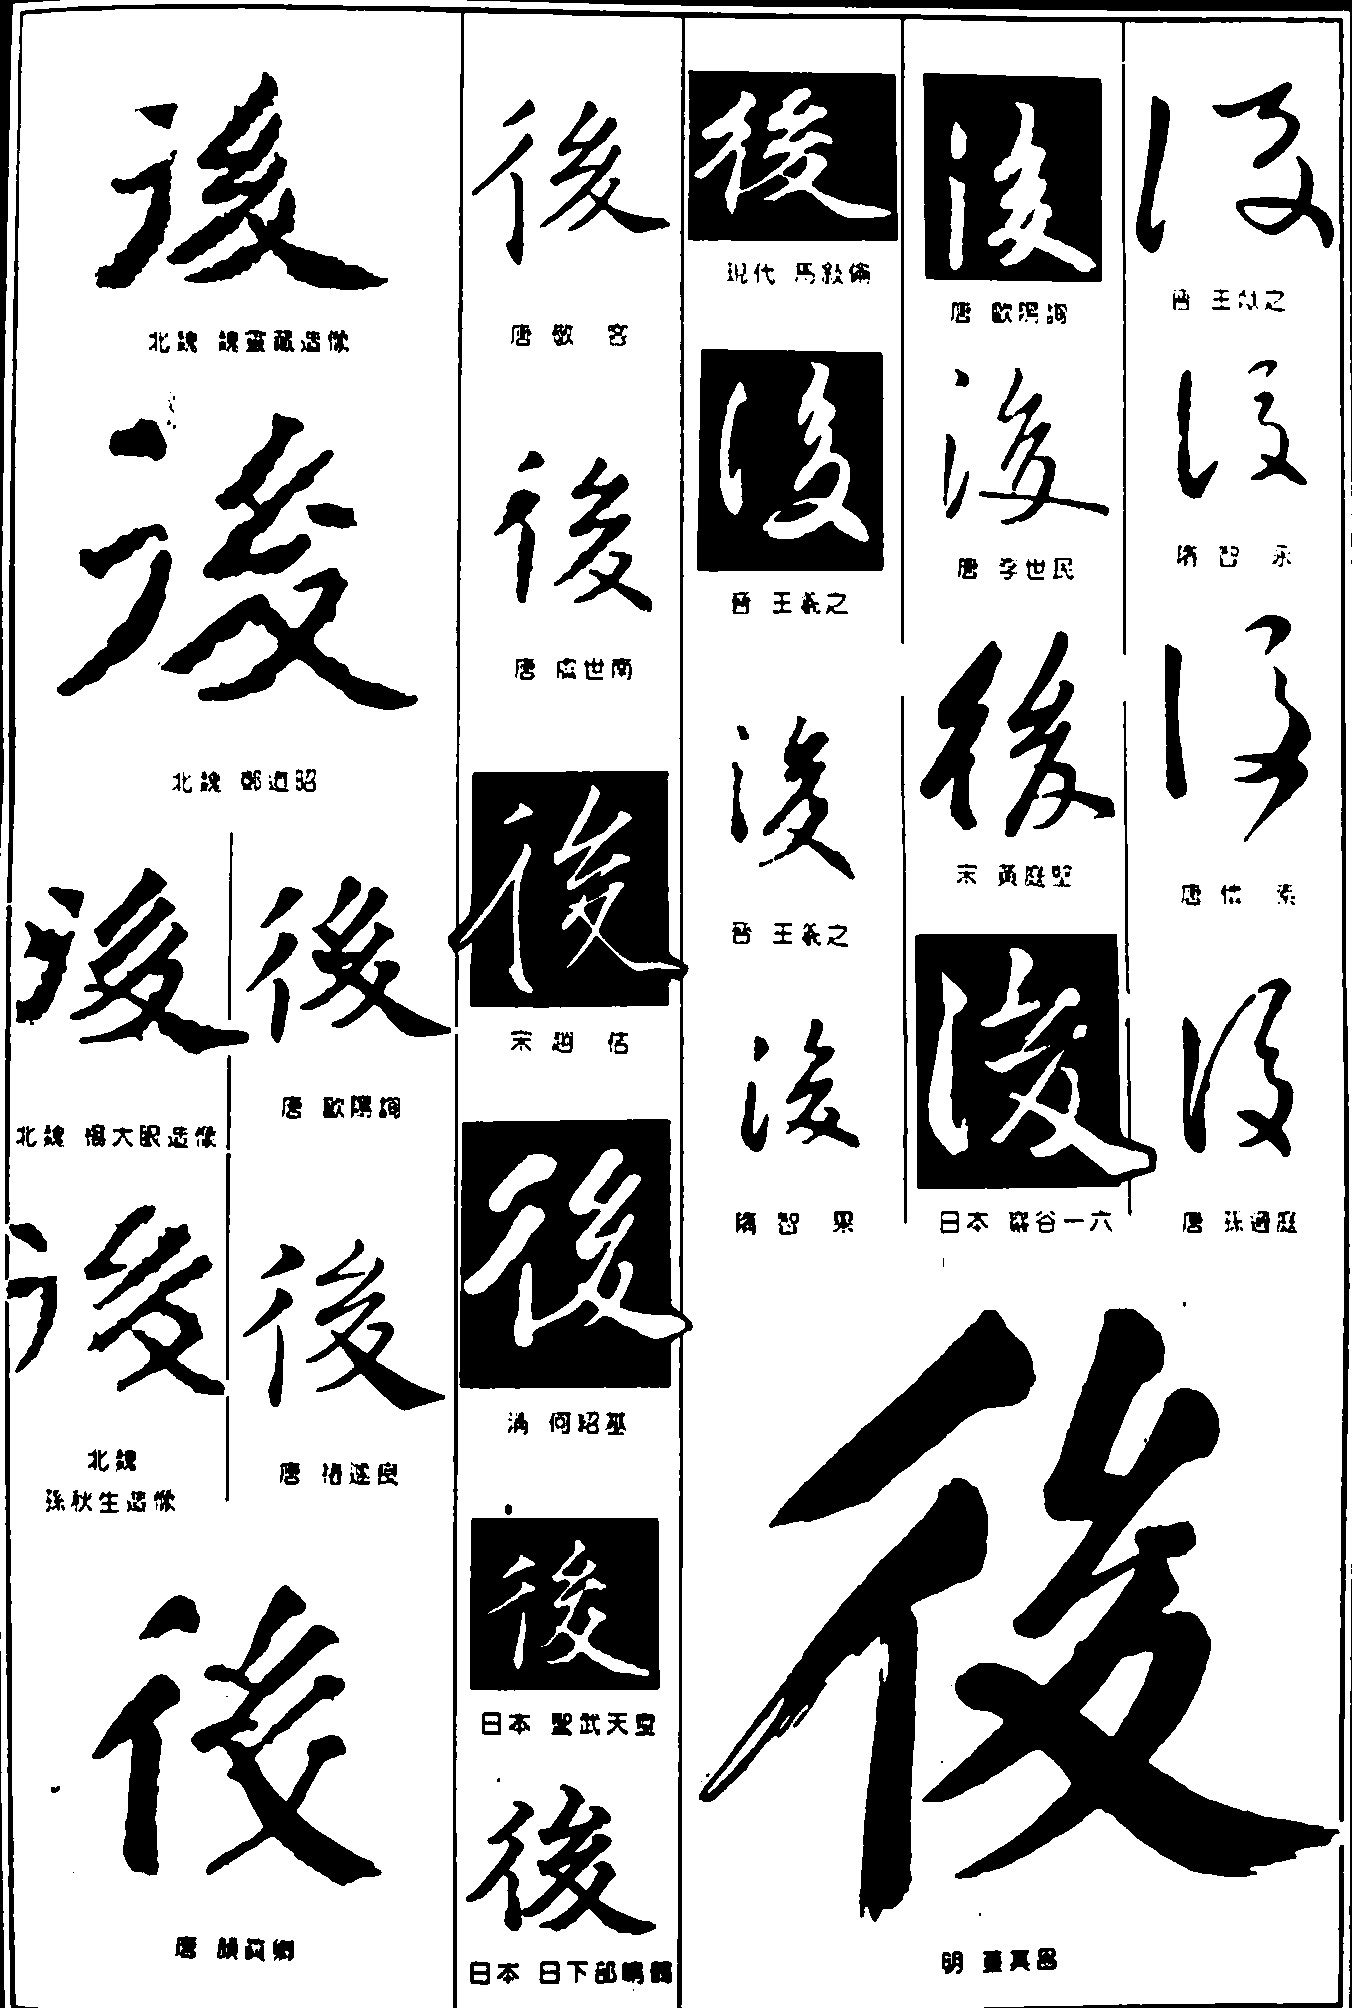 後
北魏 魏靈藏造像
後
北魏 鄭道昭
後
北魏 楊大眼造像
後
北魏
孫秋生造像
後
唐 歐陽詢
後
唐 褚遂良
後
唐 顏真卿
後
唐 敬 客
後
唐 虞世南
後
宋 趙 佶
後
清 何紹基
後
日本 聖武天皇
後
日本 日下部鳴鶴
後
現代 馬敘倫
後
晉 王羲之
後
晉 王羲之
後
隋 智 果
後
唐 歐陽詢
後
唐 李世民
後
宋 黃庭堅
後
日本 巖谷一六
後
晉 王獻之
後
隋 智 永
後
唐 懷 素
後
唐 孫過庭
後
明 董其昌